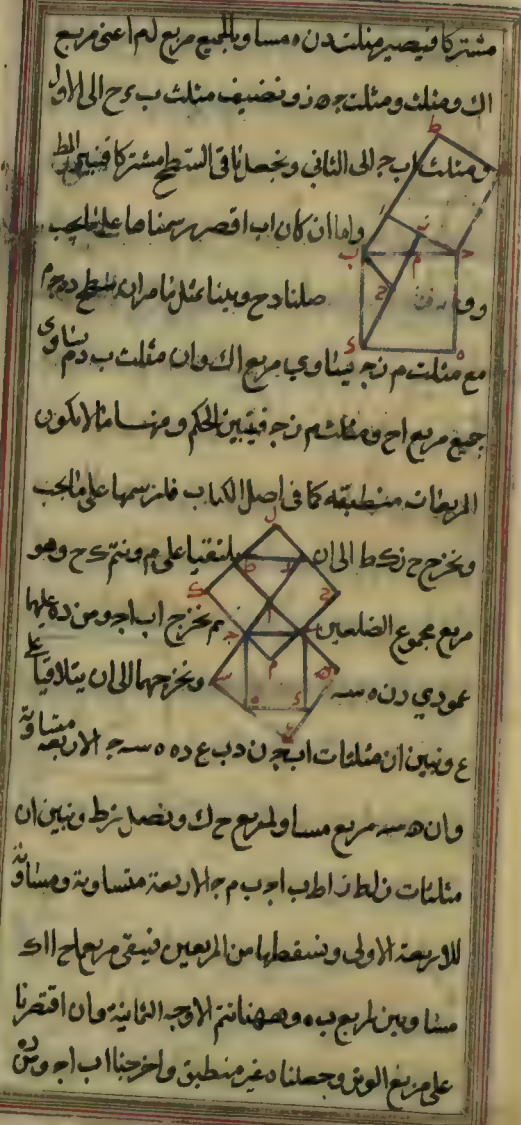 مشتركا فيصير مثلث دن ه مساويا لجميع مربع ل م اعنى مربع
اك ومثلث ومثلث جه ز ونضيف مثلث ب ح الى الاول
ومثلث اب ج الى الثانى ونجعل باقى السطح مشتركا فتبين المط
واما ان كان اب اقصر رسمنا ها على مايجب
صلنا دح وبينا بمثل مامر ان سطح
مع مثلث م ن ج يساوى مربع اك وان مثلث ب د م يساوى
جميع مربع اح ومثلث م ن ج فيتبين الحكم ومنها ما لايكون
المربعات منطبقه كما فى اصل الكتاب فلنرسمها على مايجب
ونخرج ح ز ك ط الى ان يلتقيا على م ونتم ك ح وهو
مربع مجموع الضلعين ثم نخرج اب اج ومن ده عليها
عمودى دن ه سه ونخرجهما الى ان يتلاقيا على
ع ونبين ان مثلثات اب ج ن دب ع ده ه سه ج الاربعه متساوية
وان ه سه مربع مساو لمربع ح ك ونصل ز ط ونبين ان
مثلثات ز لط ز اط ب اج ب م ج الاربعة متساوية ومساوية
للاربعة الاولى ونسقطها من المربعين فيبقى مربعا اح اك
مساويين لمربع ب ه وههنا تتم الاوجه الثمانية وان اقتصرنا
على مربع الوتر وجعلناه غير منطبق واخرجنا اب اج ومن
ط
ا
ب
م
ح
د
ه
ل
ط
ك
ا
ج
م
ن
سه
ه
د
ع